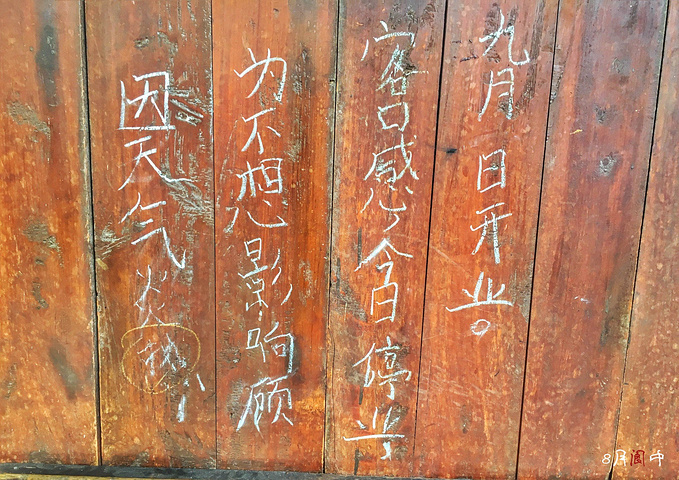 因天气炎热,
为不想影响顾
客口感,今日停业
九月 日开业。
8月阆中